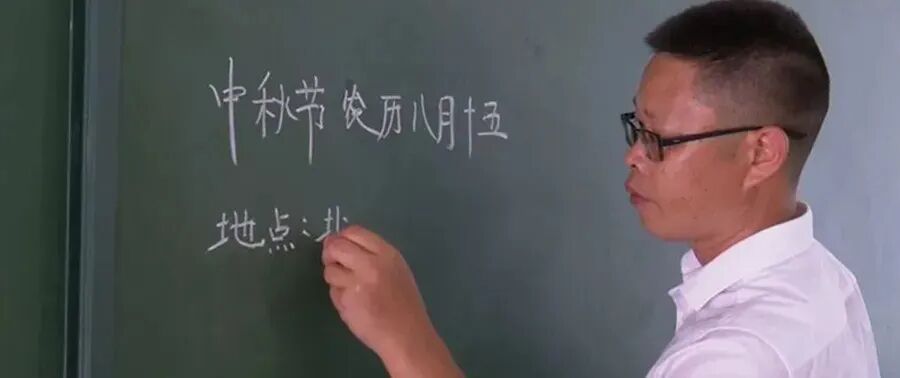 中秋节农历八月十五
地点: